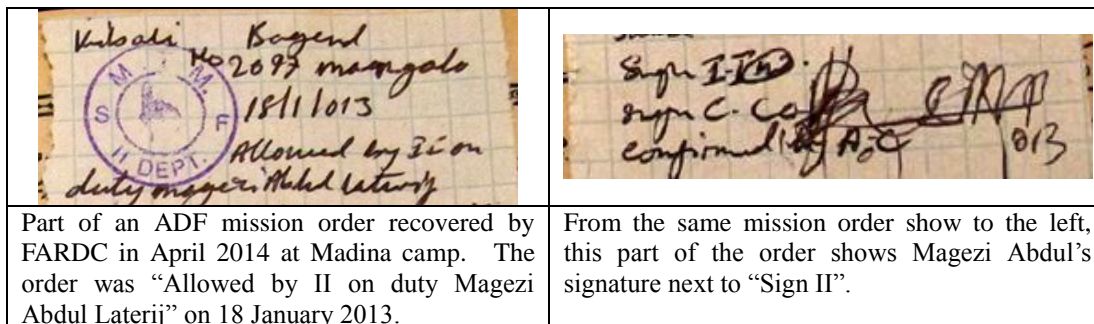 Kibsali Bagend
No 2097 maongalo
18/1/013
Allowed by II on
duty mageri Abdul laterij
M. M.
S F
II DEPT.
Sign II
sign C. Co
confirmed by A.C 013
Part of an ADF mission order recovered by
FARDC in April 2014 at Madina camp. The
order was “Allowed by II on duty Magezi
Abdul Laterij” on 18 January 2013.
From the same mission order show to the left,
this part of the order shows Magezi Abdul’s
signature next to “Sign II”.